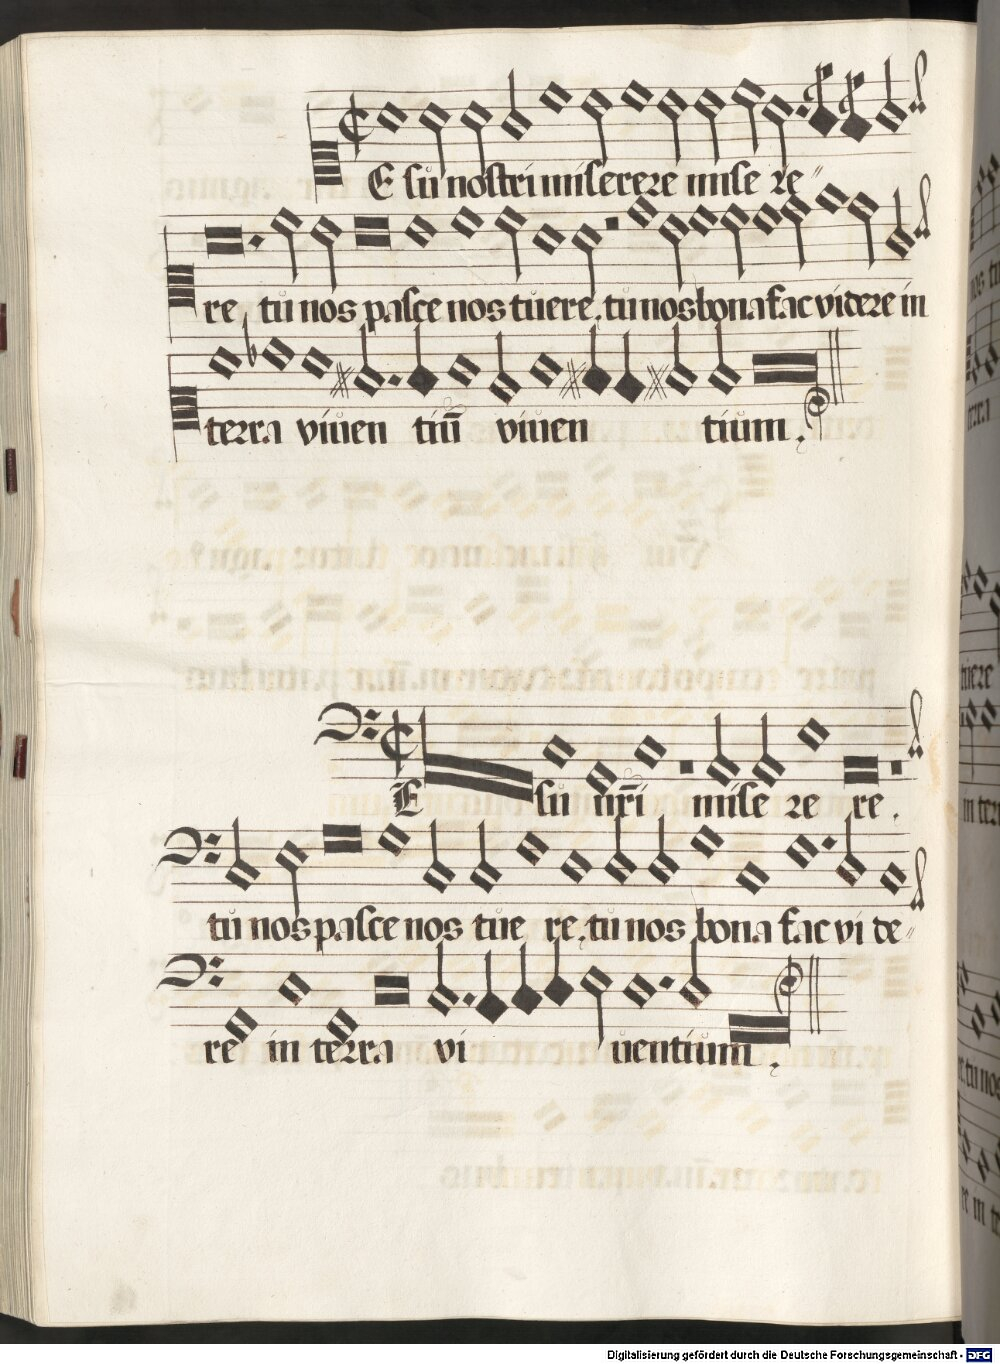 E su nostri miserere mise re
re, tu nos pasce nos tuere, tu nos bona fac videre in
terra viuen tiū viuen tium.
E su nr̄i mise re re.
tu nos pasce nos tue re, tu nos bona fac vi de
re in terra vi uentium.
Digitalisierung gefördert durch die Deutsche Forschungsgemeinschaft - DFG